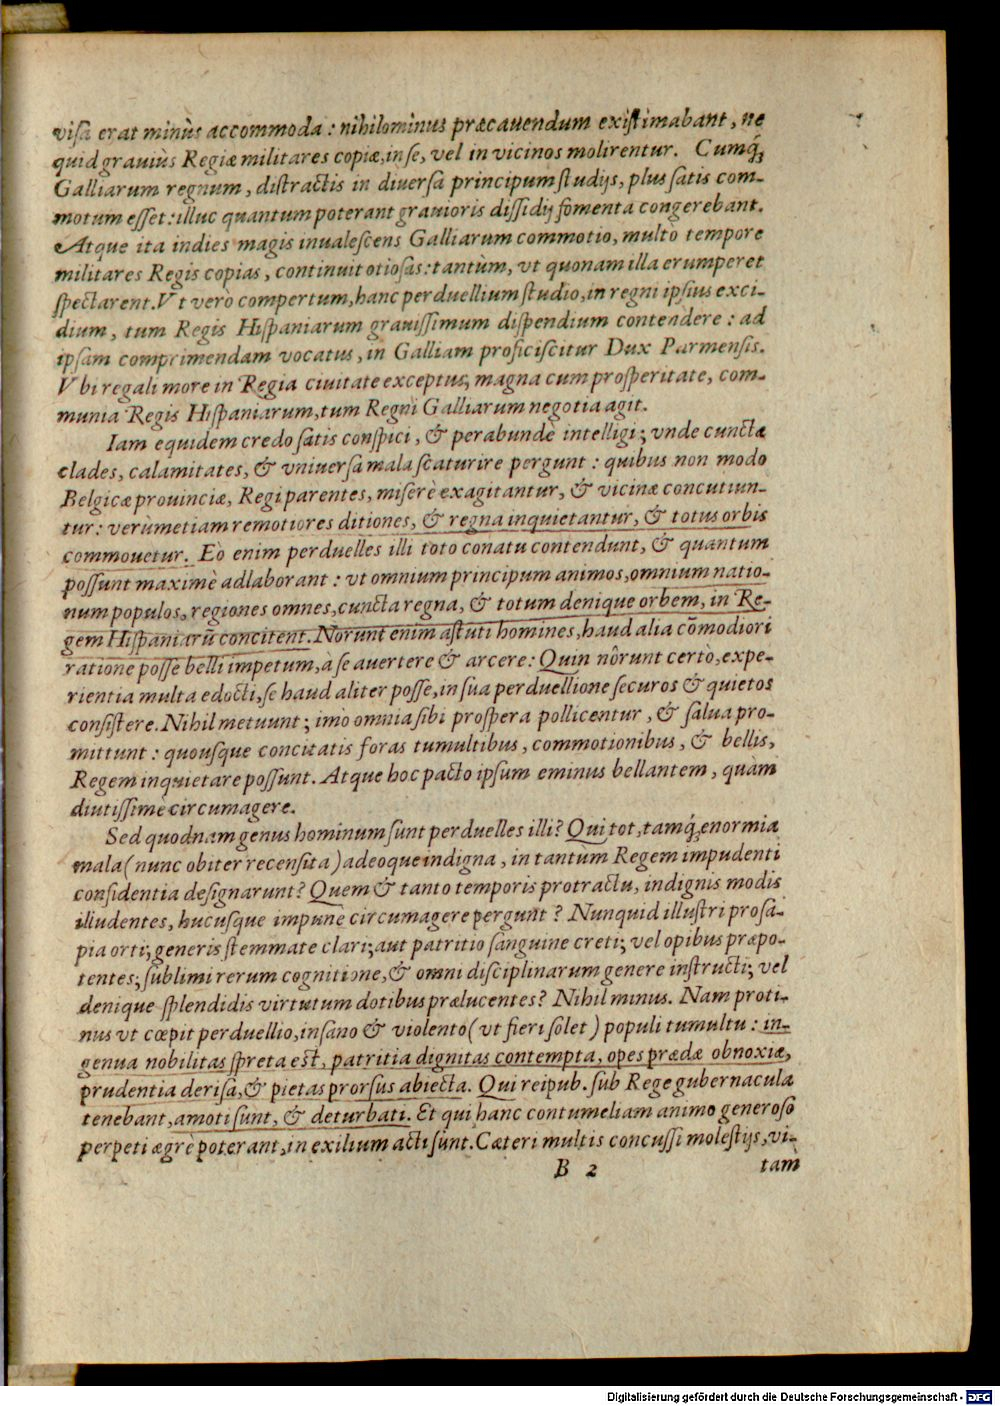 visa erat minùs accommoda: nihilominus præcauendum existimabant, ne
quid grauiùs Regiæ militares copiæ, in se, vel in vicinos molirentur. Cumq́;
Galliarum regnum, distractis in diuersa principum studijs, plus satis com-
motum esset: illuc quantum poterant grauioris dissidij fomenta congerebant.
Atque ita indies magis inualescens Galliarum commotio, multo tempore
militares Regis copias, continuit otiosas: tantùm, vt quonam illa erumperet
spectarent. Vt verò compertum, hanc perduellium studio, in regni ipsius exci-
dium, tum Regis Hispaniarum grauissimum dispendium contendere: ad
ipsam comprimendam vocatus, in Galliam proficiscitur Dux Parmensis.
Vbi regali more in Regia ciuitate exceptus, magna cum prosperitate, com-
munia Regis Hispaniarum, tum Regni Galliarum negotia agit.
Iam equidem credo satis conspici, & perabundè intelligi; vnde cunctæ
clades, calamitates, & vniuersa mala scaturire pergunt: quibus non modo
Belgicæ prouinciæ, Regi parentes, miserè exagitantur, & vicinæ concutiun-
tur: verùm etiam remotiores ditiones, & regna inquietantur, & totus orbis
commouetur. Eò enim perduelles illi toto conatu contendunt, & quantum
possunt maximè adlaborant: vt omnium principum animos, omnium natio-
num populos, regiones omnes, cuncta regna, & totum denique orbem, in Re-
gem Hispaniarū concitent. Norunt enim astuti homines, haud alia cōmodiori
ratione posse belli impetum, à se auertere & arcere: Quin nôrunt certò, expe-
rientia multa edocti, se haud aliter posse, in sua perduellione securos & quietos
consistere. Nihil metuunt; imò omnia sibi prospera pollicentur, & salua pro-
mittunt: quousque concitatis foras tumultibus, commotionibus, & bellis,
Regem inquietare possunt. Atque hoc pacto ipsum eminus bellantem, quàm
diutissimè circumagere.
Sed quodnam genus hominum sunt perduelles illi? Qui tot, tamq́; enormia
mala (nunc obiter recensita) adeoque indigna, in tantum Regem impudenti
considentia designarunt? Quem & tanto temporis protractu, indignis modis
illudentes, hucusque impunè circumagere pergunt? Nunquid illustri prosa-
pia orti; generis stemmate clari; aut patritio sanguine creti; vel opibus præpo-
tentes; sublimi rerum cognitione, & omni disciplinarum genere instructi; vel
denique splendidis virtutum dotibus prælucentes? Nihil minus. Nam proti-
nus vt cœpit perduellio, insano & violento (vt fieri solet) populi tumultu: in-
genua nobilitas spreta est, patritia dignitas contempta, opes prædæ obnoxiæ,
prudentia derisa, & pietas prorsus abiecta. Qui reipub. sub Rege gubernacula
tenebant, amoti sunt, & deturbati. Et qui hanc contumeliam animo generoso
perpeti ægrè poterant, in exilium acti sunt. Cæteri multis concussi molestijs, vi-
B 2 tam
Digitalisierung gefördert durch die Deutsche Forschungsgemeinschaft - DFG